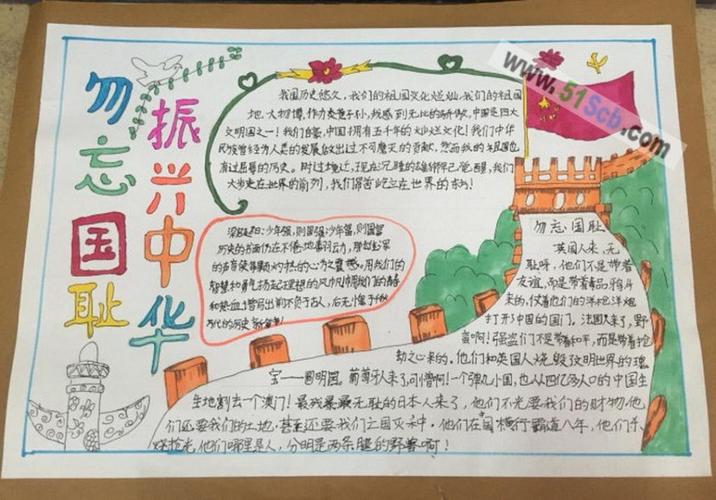 勿忘国耻
振兴中华
www.51Scb.com
我国历史悠久，我们的祖国文化灿烂，我们的祖国
地大物博，作为炎黄子孙，我感到无比的骄傲，中国是四大
文明国之一！我们自豪，中国拥有五千年的灿烂文化！我们中华
民族曾经为人类的发展做出过不可磨灭的贡献，然而我的祖国也
有过屈辱的历史。时过境迁，现在沉睡的雄狮早已觉醒，我们
大步走在世界的前列，我们
在世界的
少年强，则国强，少年富，则国富
历史的
的声音
的心为之震撼。用我们的
智慧和勇气扬起理想的风帆，用我们的青春
和热血谱写出前不负于古人，后无愧于
万代的历史新篇章！
勿忘国耻
英国人来，无
耻呀，他们不是带着
友谊，而是带着毒品鸦片
来的，仗着他们的洋枪洋炮
打开了中国的国门。法国人来了，野
蛮啊！强盗们不是带着和平，而是带着抢
劫之心来的，他们和英国人烧毁文明世界的瑰
宝——圆明园。葡萄牙人来了，可憎啊！一个弹丸小国，也从四亿多人口的中国生
生地割去一个澳门！最残暴最无耻的日本人来了，他们不光要我们的财物，他
们还要我们的土地，甚至还要我们亡国灭种，他们在中国横行霸道八年，他们杀
烧抢光，他们哪里是人，分明是两条腿的野兽啊！